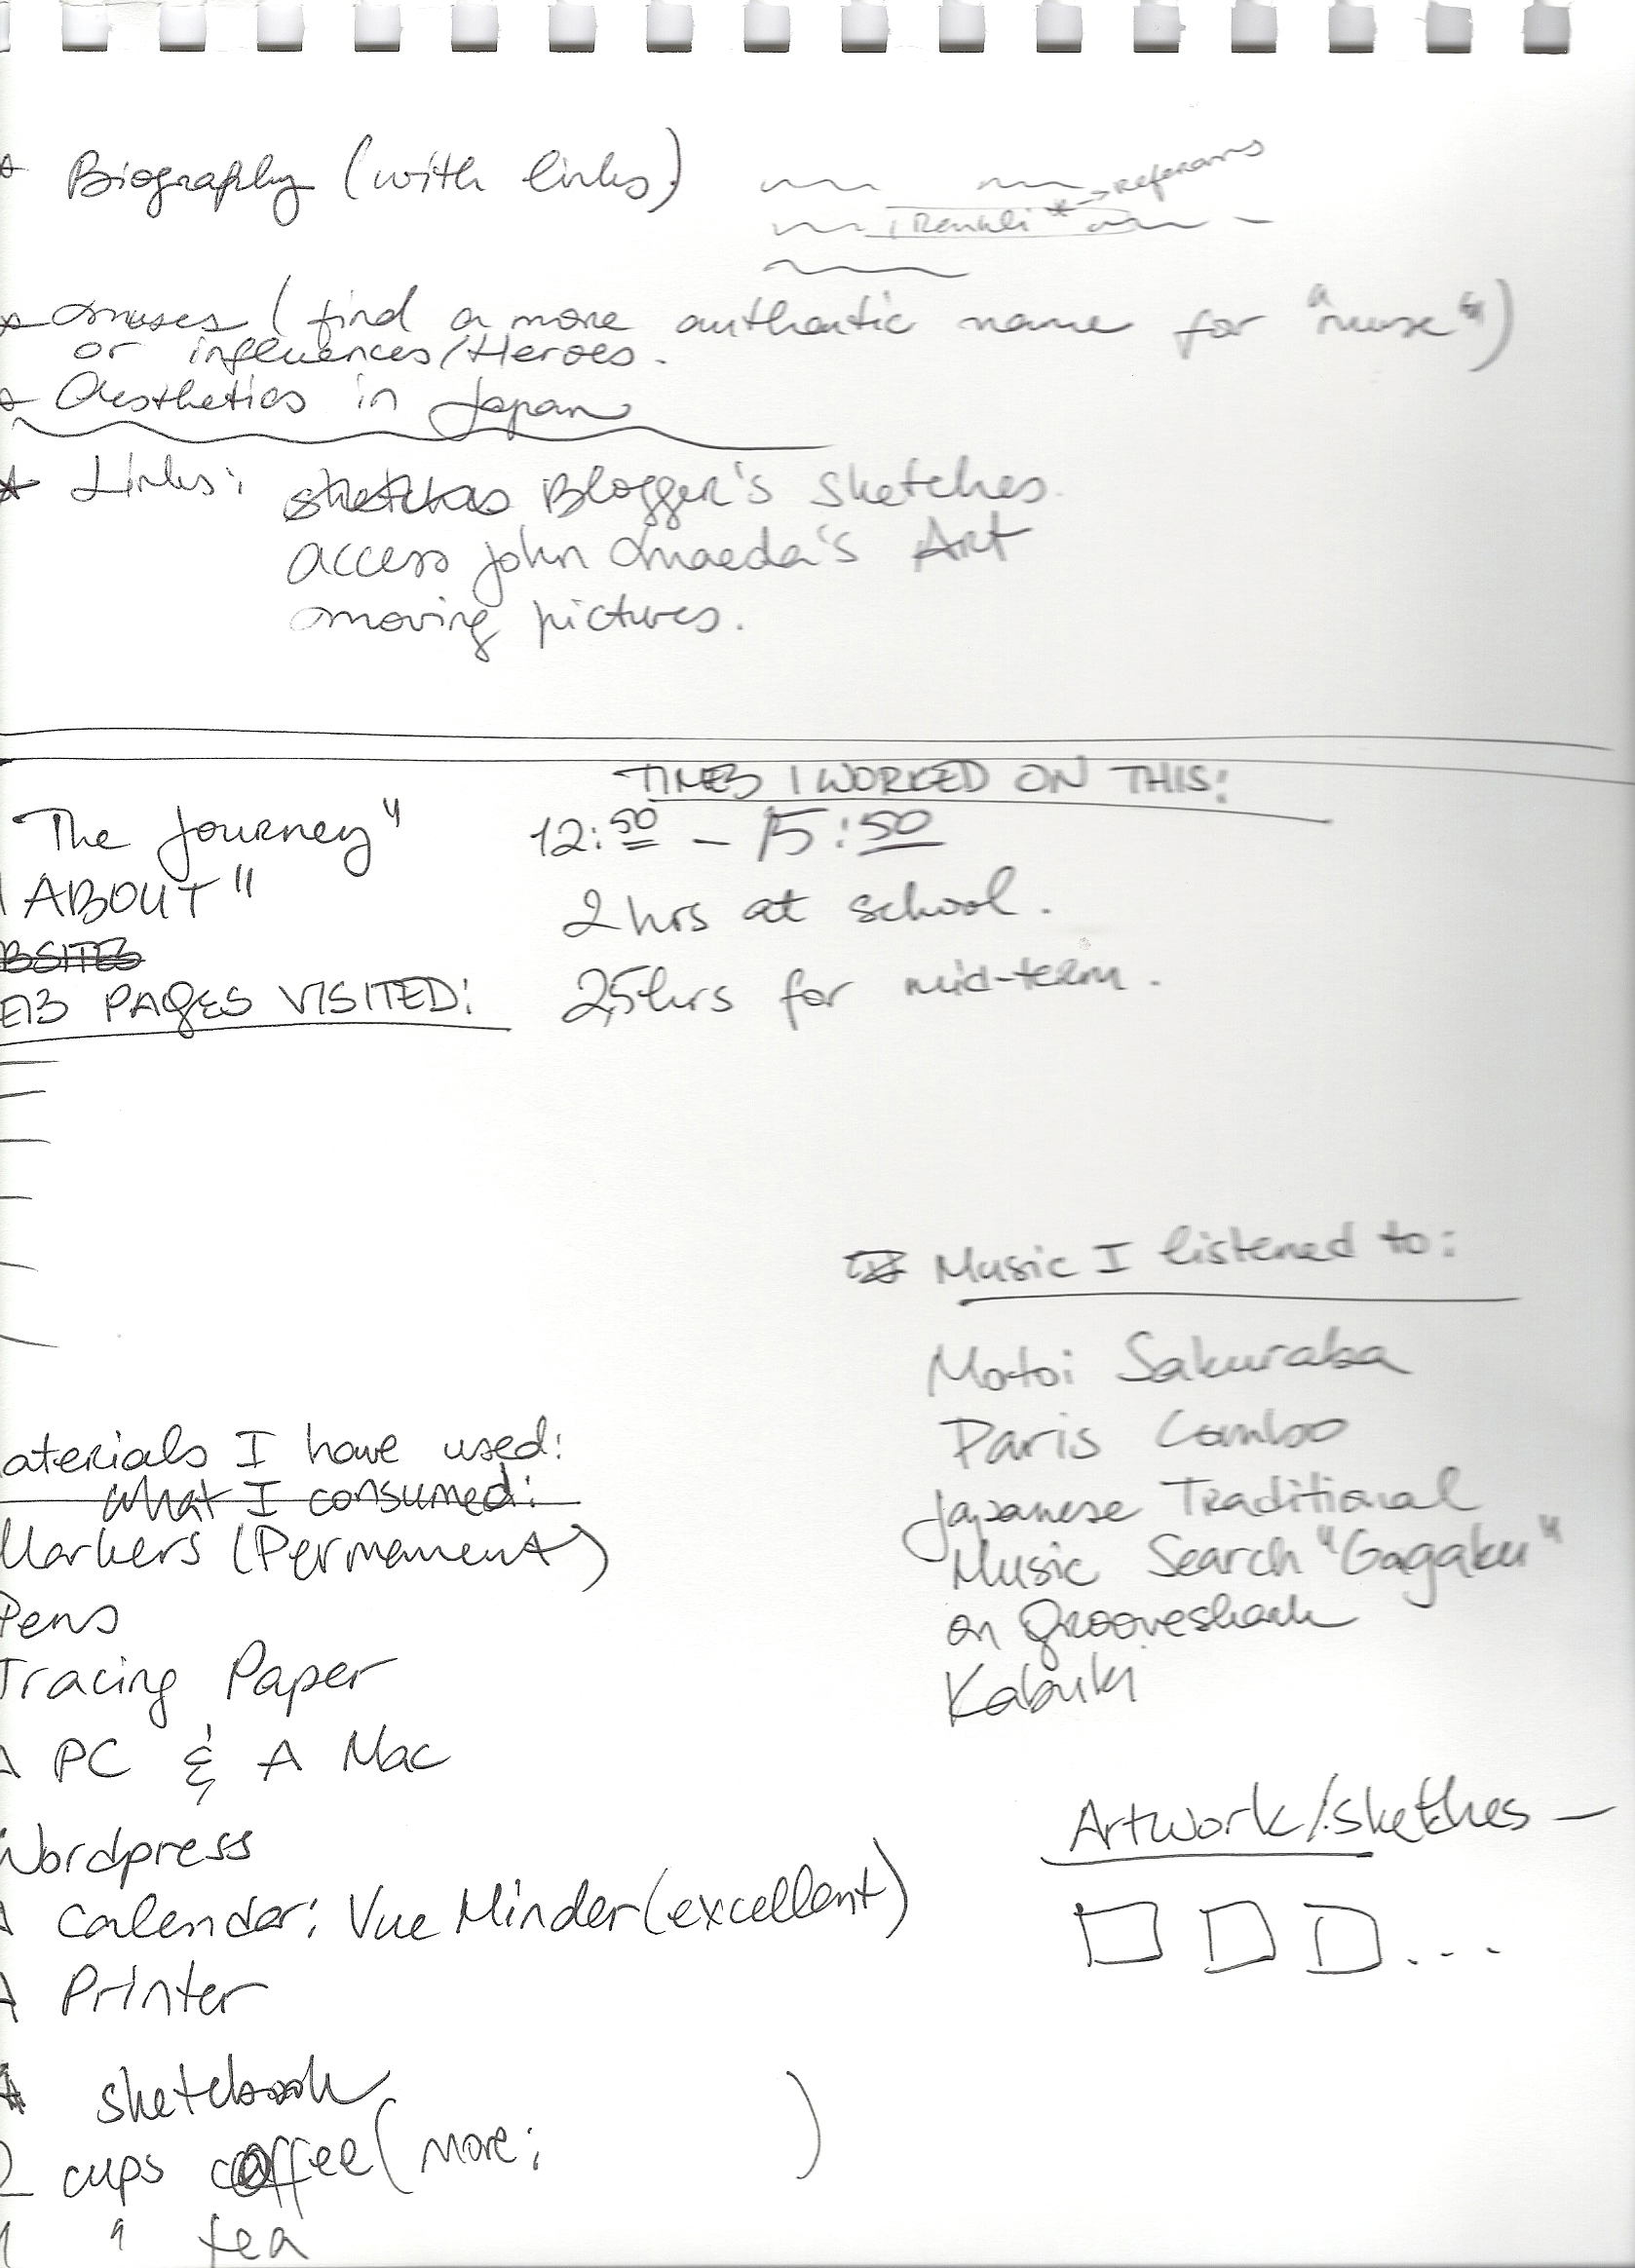 Biography (with links)
* Muses (find a more authentic name for "muse")
or influences/Heroes.
Aesthetics in Japan
* Links: sketches Blogger's sketches.
access John Maeda's Art
moving pictures.
TIMES I WORKED ON THIS:
The Journey" 12:50 – 15:50
ABOUT" 2 hrs at school.
BSITES
EB PAGES VISITED: 2,5hrs for mid-term.
Music I listened to:
Motoi Sakuraba
Paris Combo
Japanese Traditional
Music Search "Gagaku"
on Grooveshark
Kabuki
aterials I have used:
what I consumed:
Markers (Permanent)
Pens
Tracing Paper
A PC & A Mac
Wordpress
A Calendar: VueMinder (excellent)
A Printer
Artwork/sketches –
A sketchbook
2 cups coffee (more; )
1 " tea